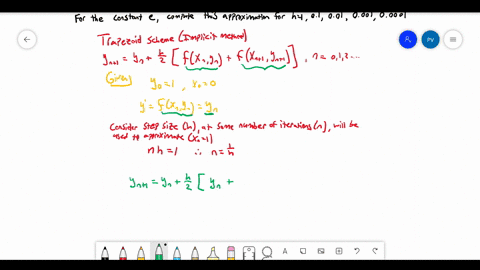 For the constant e, compute this approximation for h=1, 0.1, 0.01, 0.001, 0.0001
PV
Trapezoid Scheme (Implicit method)
yₙ₊₁ = yₙ + h/2 [ f(xₙ,yₙ) + f(xₙ₊₁,yₙ₊₁) ] , n = 0,1,2 ...
Given
y₀ = 1 , x₀ = 0
y' = f(xₙ,yₙ) = yₙ
Consider step size (h), at some number of iterations (n), will be
used to approximate (xₙ=1)
n h = 1 ∴ n = 1/h
yₙ₊₁ = yₙ + h/2 [ yₙ +